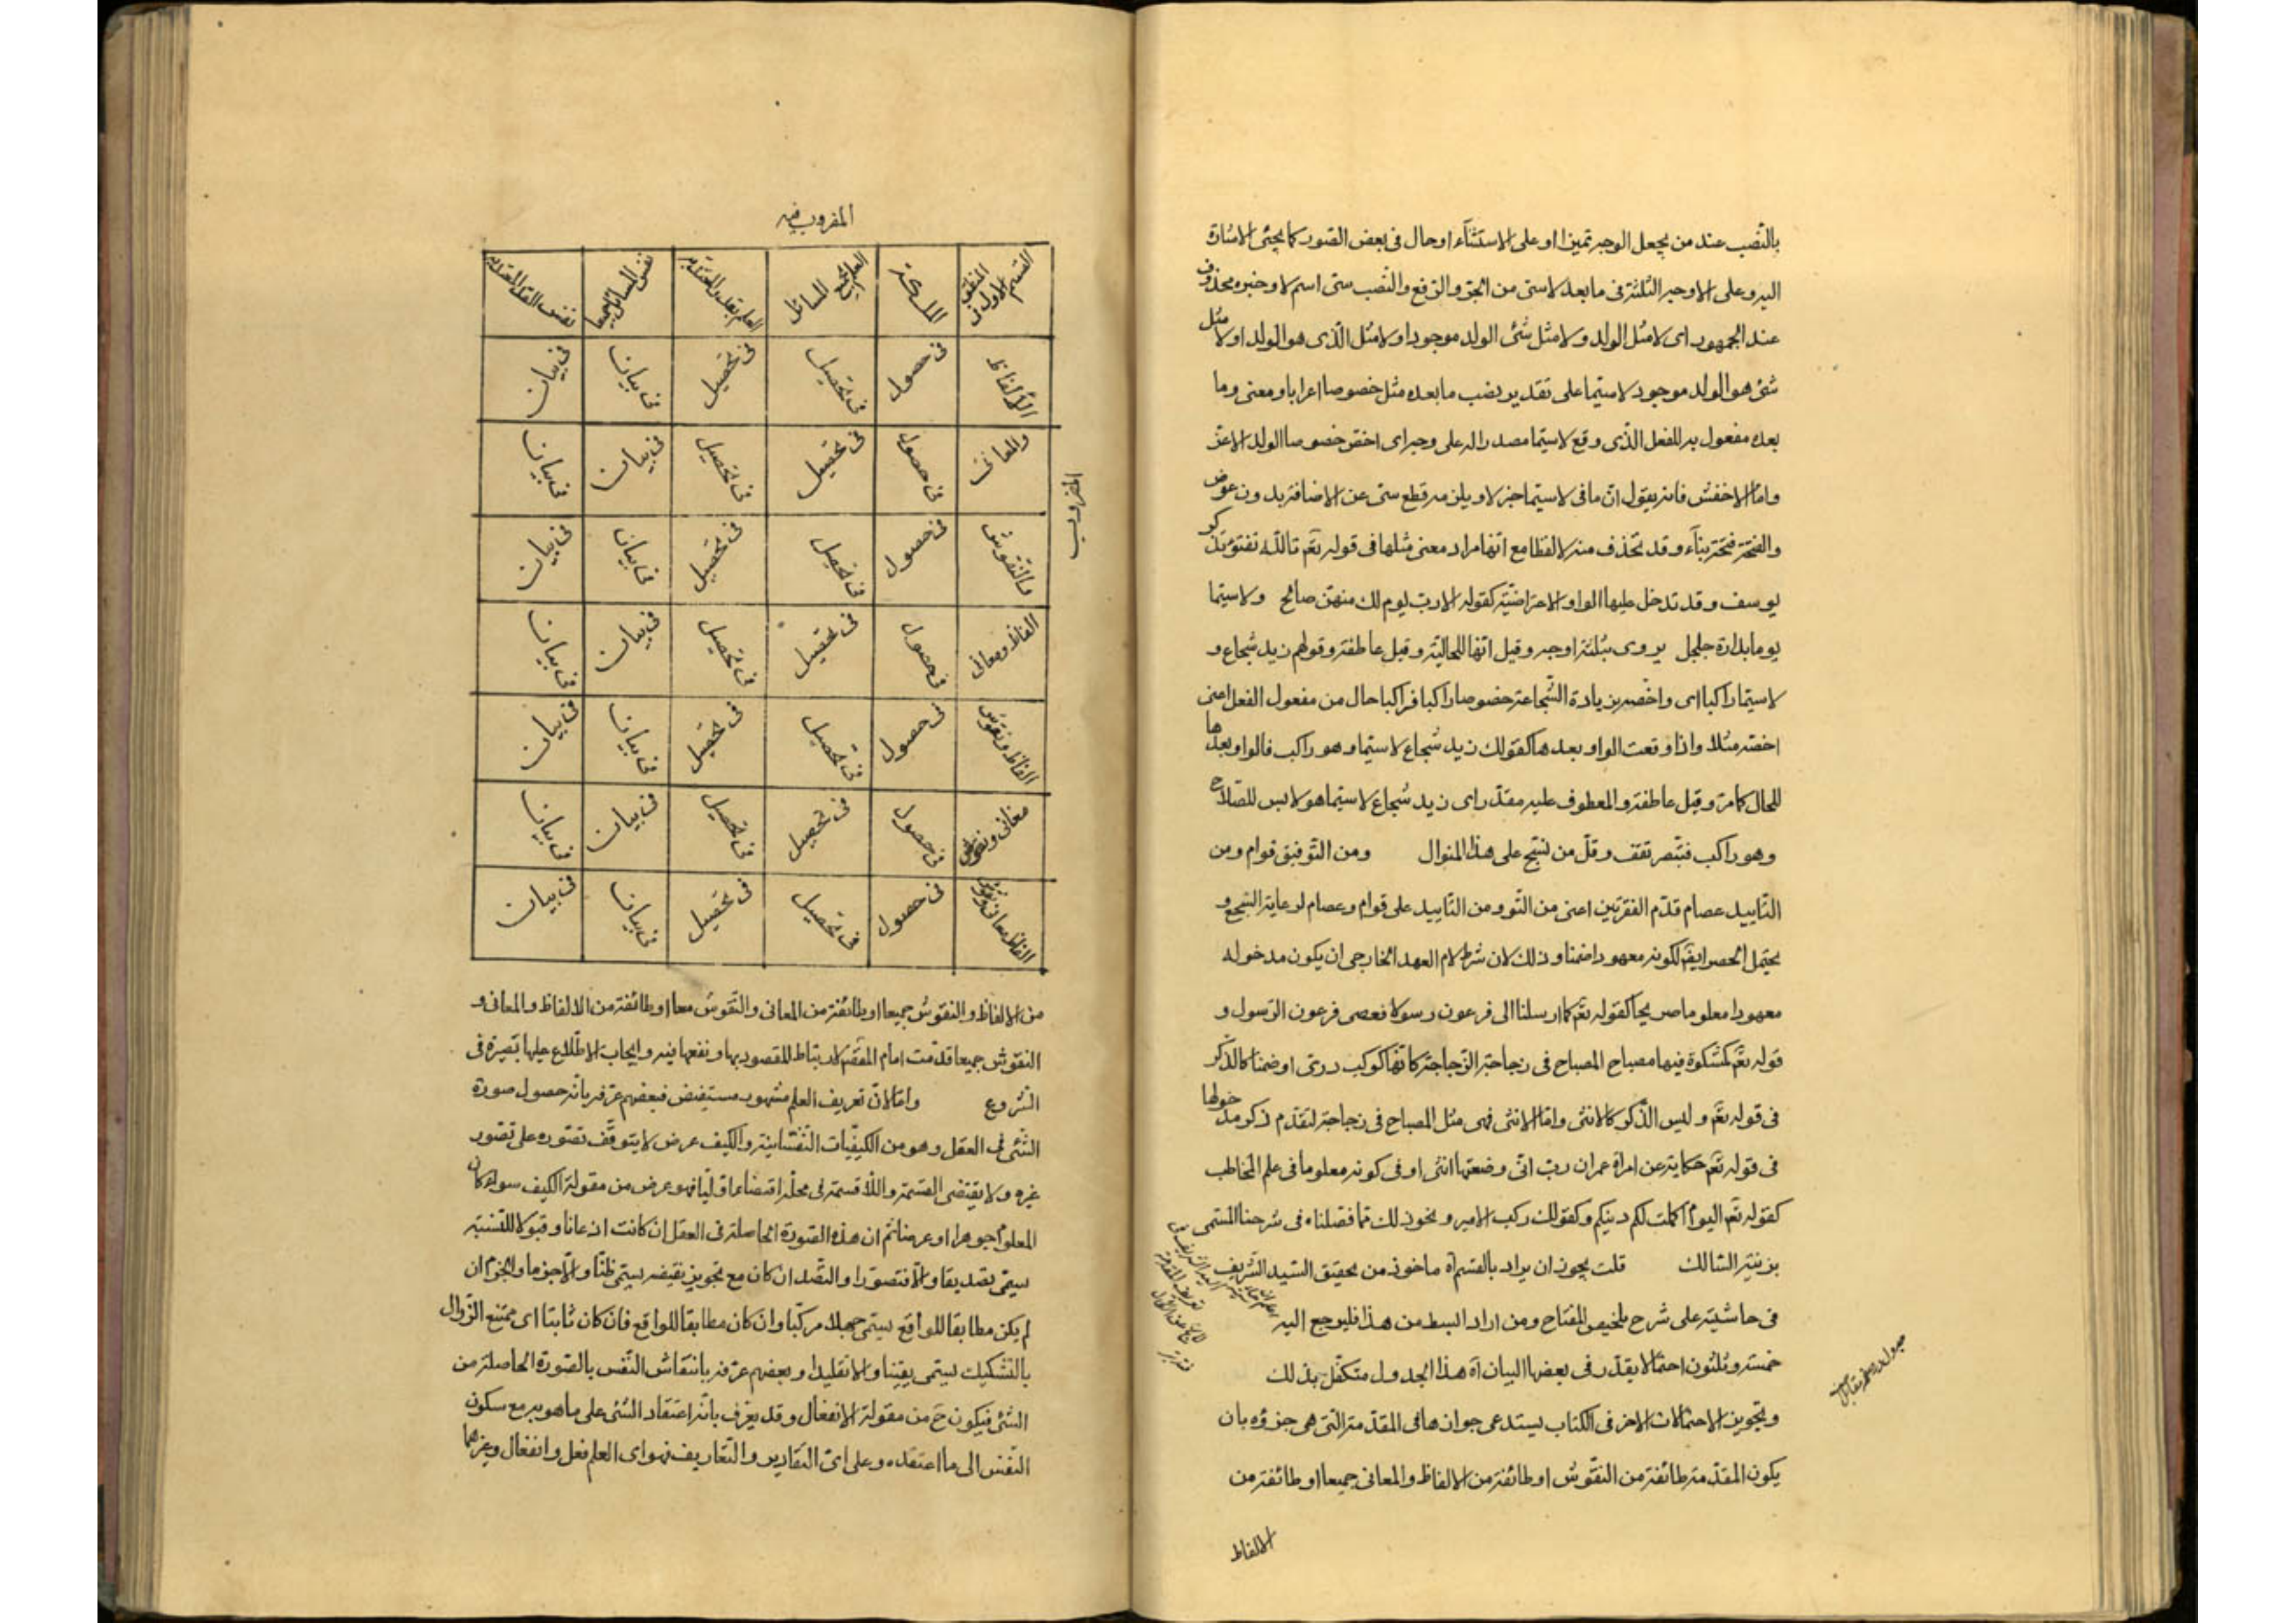 بالنصب عند من يجعل الوجه تميزا او على الاستثناء او حال فى بعض الصور كما يجئى الاشارة
اليه و على الاوجه الثلثة فى ما بعد لاسى من الجر و الرفع و النصب سى اسم لا و خبره محذوف
عند الجمهور اى لا مثل الولد و لا مثل شئ الولد موجود او لا مثل الذى هو الولد او لا مثل
شئ هو الولد موجود لاسيما على تقدير نصب ما بعده مثل خصوصا اعرابا و معنى و ما
بعده مفعول به للفعل الذى وقع لاسيما مصدرا له على وجه اى اخص خصوصا الولد الاعز
و اما الاخفش فانه يقول ان ما فى لاسيما خبر لا و يلزمه قطع سى عن الاضافة بدون عوض
و الفتحة فتحة بناء و قد تحذف منه لا لفظا مع انها مراد معنى مثلها فى قوله تعم تالله تفتؤ تذكر
يوسف و قد تدخل عليها الواو الاعتراضية كقوله الا رب يوم لك منهن صالح و لاسيما
يوما بدارة جلجل يروى بثلثة اوجه و قيل انها للحالية و قيل عاطفة و قولهم زيد شجاع و
لاسيما راكبا اى و اخصه بزيادة الشجاعة خصوصا راكبا فراكبا حال من مفعول الفعل اعنى
اخصه مثلا و اذا وقعت الواو بعدها كقولك زيد شجاع لاسيما و هو راكب فالواو بعدها
للحال كما مر و قيل عاطفة و المعطوف عليه مقدر اى زيد شجاع لاسيما هو لابس للصلاح
و هو راكب فتبصر تقف و قل من نسج على هذا المنوال و من التوفيق قوام و من
التاييد عصام قدم الفقرتين اعنى من التو و من التاييد على قوام و عصام لرعاية السجع و
يحتمل الحصر ايضا لكونه معهودا ضمنا و ذلك لان شرط لام العهد الخارجى ان يكون مدخوله
معهودا معلوما صريحا كقوله تعم كما ارسلنا الى فرعون رسولا فعصى فرعون الرسول و
قوله تعم كمشكوة فيها مصباح المصباح فى زجاجة الزجاجة كانها كوكب درى او ضمنا كالذكر
فى قوله تعم و ليس الذكر كالانثى و اما الانثى فهى مثل المصباح فى زجاجة لتقدم ذكر مدخولها
فى قوله تعم حكاية عن امراة عمران رب انى وضعتها انثى او فى كونه معلوما فى علم المخاطب
كقوله تعم اليوم اكملت لكم دينكم و كقولك ركب الامير و نحو ذلك مما فصلناه فى شرحنا المسمى
بزينة السالك قلت يجوز ان يراد بالقسم اه ماخوذ من تحقيق السيد الشريف
فى حاشيته على شرح تلخيص المفتاح و من اراد البسط من هذا فليرجع اليه
خمسة و ثلثون احتمالا يقدر فى بعضها البيان اه هذا الجدول متكفل بذلك
و تجويز الاحتمالات الاخر فى الكتاب يستدعى جوازها فى المقدمة التى هى جزؤه بان
يكون المقدمة طائفة من النقوش او طائفة من الالفاظ و المعانى جميعا او طائفة من
الالفاظ
المضروب فيه
القسم الاول فى المنطق
الملكة
العلم بجميع المسائل
العلم بقدر المعتد به
نفس المسائل جميعا
نفس القدر المعتد به
المضروب
الألفاظ فى حصول فى تحصيل فى تحصيل فى بيان فى بيان
والمعانى فى حصول فى تحصيل فى تحصيل فى بيان فى بيان
والنقوش فى حصول فى تحصيل فى تحصيل فى بيان فى بيان
الفاظ ومعانى فى حصول فى تحصيل فى تحصيل فى بيان فى بيان
الفاظ ونقوش فى حصول فى تحصيل فى تحصيل فى بيان فى بيان
معانى ونقوش فى حصول فى تحصيل فى تحصيل فى بيان فى بيان
الفاظ ومعانى ونقوش فى حصول فى تحصيل فى تحصيل فى بيان فى بيان
من الالفاظ و النقوش جميعا او طائفة من المعانى و النقوش معا او طائفة من الالفاظ و المعانى و
النقوش جميعا قدمت امام المقصد لارتباط المقصود بها و نفعها فيه و ايجاب الاطلاع عليها بصيرة فى
الشروع و اما لان تعريف العلم مشهور مستفيض فبعضهم عرفه بانه حصول صورة
الشئ فى العقل و هو من الكيفيات النفسانية و الكيف عرض لا يتوقف تصوره على تصور
غيره و لا يقتضى القسمة و اللاقسمة فى محله اقتضاء اوليا فهو عرض من مقولة الكيف سواء كان
المعلوم جوهرا او عرضا ثم ان هذه الصورة الحاصلة فى العقل ان كانت اذعانا و قبولا للنسبة
يسمى تصديقا و الا فتصورا و التصد ان كان مع تجويز نقيضه يسمى ظنا و الا جزما و الجزم ان
لم يكن مطابقا للواقع يسمى جهلا مركبا و ان كان مطابقا للواقع فان كان ثابتا اى ممتنع الزوال
بالتشكيك يسمى يقينا و الا تقليدا و بعضهم عرفه بانتقاش النفس بالصورة الحاصلة من
الشئ فيكون ح من مقولة الانفعال و قد يعرف بانه اعتقاد الشئ على ما هو به مع سكون
النفس الى ما اعتقده و على اى التقادير و التعاريف فهو اى العلم فعل و انفعال و غيرهما